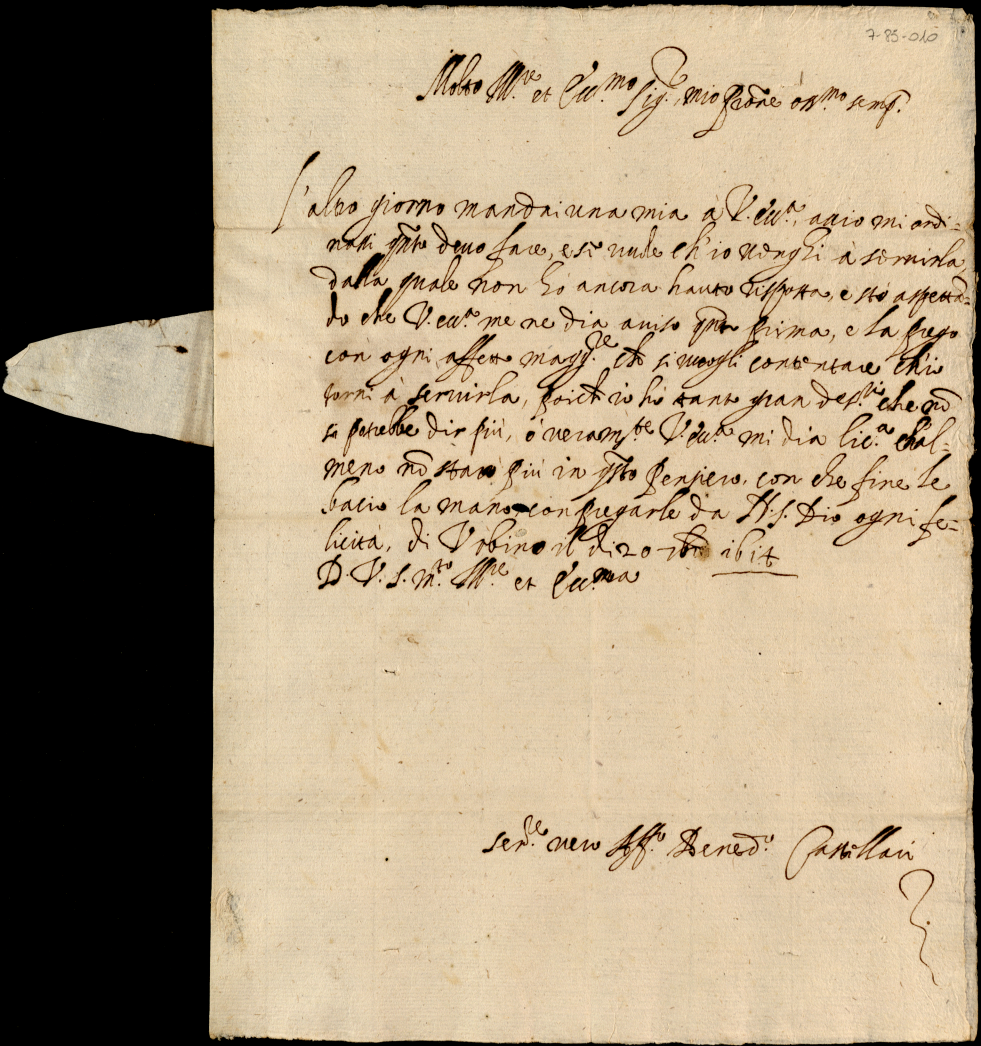 7-85-010
Molto Ill.re et Ecc.mo Sig.re, mio Prone oss.mo semp.
L'altro giorno mandai una mia à V. ecc.a, acciò mi ordi-
nassi q̃nto devo fare, e si vuole ch'io venghi à servirla,
dalla quale non hò ancora hauto risposta, e stò aspettã-
do che V. ecc.a me ne dia aviso q̃nto prima, e la prego
con ogni affetto magg.re ch̃ si vogli contentare ch'io
torni à servirla, poich̃ io hò tanto gran des.rio che nõ
si potrebbe dir più, ò veram.te V. ecc.a mi dia lic.a ch'al-
meno nõ starò più in q̃sto pensiero, con che fine le
bacio la mano con pregarle da N. S. Dio ogni fe-
licità, di Urbino il dì 20 1614
D. V. S. m.to Ill.re et Ecc.ma
Ser.re vero Aff.o Bened.o Castellari